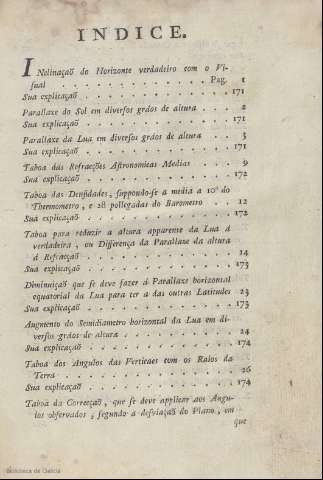 INDICE.
INclinaçaõ do Horizonte verdadeiro com o Vi-
sual . . . . . . . . . . . . Pag. 1
Sua explicaçaõ . . . . . . . . . . . . 171
Parallaxe do Sol em diversos gráos de altura . . . 2
Sua explicaçaõ . . . . . . . . . . . . 171
Parallaxe da Lua em diversos gráos de altura . . . 3
Sua explicaçaõ . . . . . . . . . . . . 171
Taboa das Refracções Astronomicas Medias . . . 9
Sua explicaçaõ . . . . . . . . . . . . 172
Taboa das Densidades, suppondo-se a média a 10° do
Thermometro, e 28 pollegadas do Barometro . . 12
Sua explicaçaõ . . . . . . . . . . . . 172
Taboa para reduzir a altura apparente da Lua á
verdadeira, ou Differença da Parallaxe da altura
á Refracçaõ . . . . . . . . . . . . 14
Sua explicaçaõ . . . . . . . . . . . . 173
Diminuiçaõ que se deve fazer á Parallaxe horizontal
equatorial da Lua para ter a das outras Latitudes 23
Sua explicaçaõ . . . . . . . . . . . . 173
Augmento do Semidiametro horizontal da Lua em di-
versos gráos de altura . . . . . . . . . 24
Sua explicaçaõ . . . . . . . . . . . . 174
Taboa dos Angulos das Verticaes com os Raios da
Terra . . . . . . . . . . . . 26
Sua explicaçaõ . . . . . . . . . . . . 174
Taboa da Correcçaõ, que se deve applicar aos Angu-
los observados, segundo a desviaçaõ do Plano, em
que
Biblioteca de Galicia